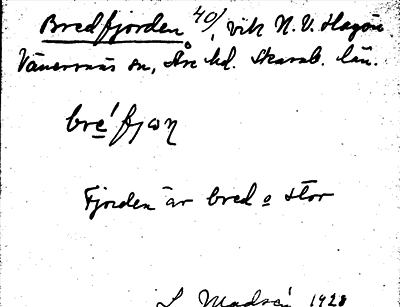 Bredfjorden 40/, vik N.V. Hagön
Vänersnäs sn, Åse hd. Skarab. län.
bre´fjωŋ
Fjorden är bred o stor
1928